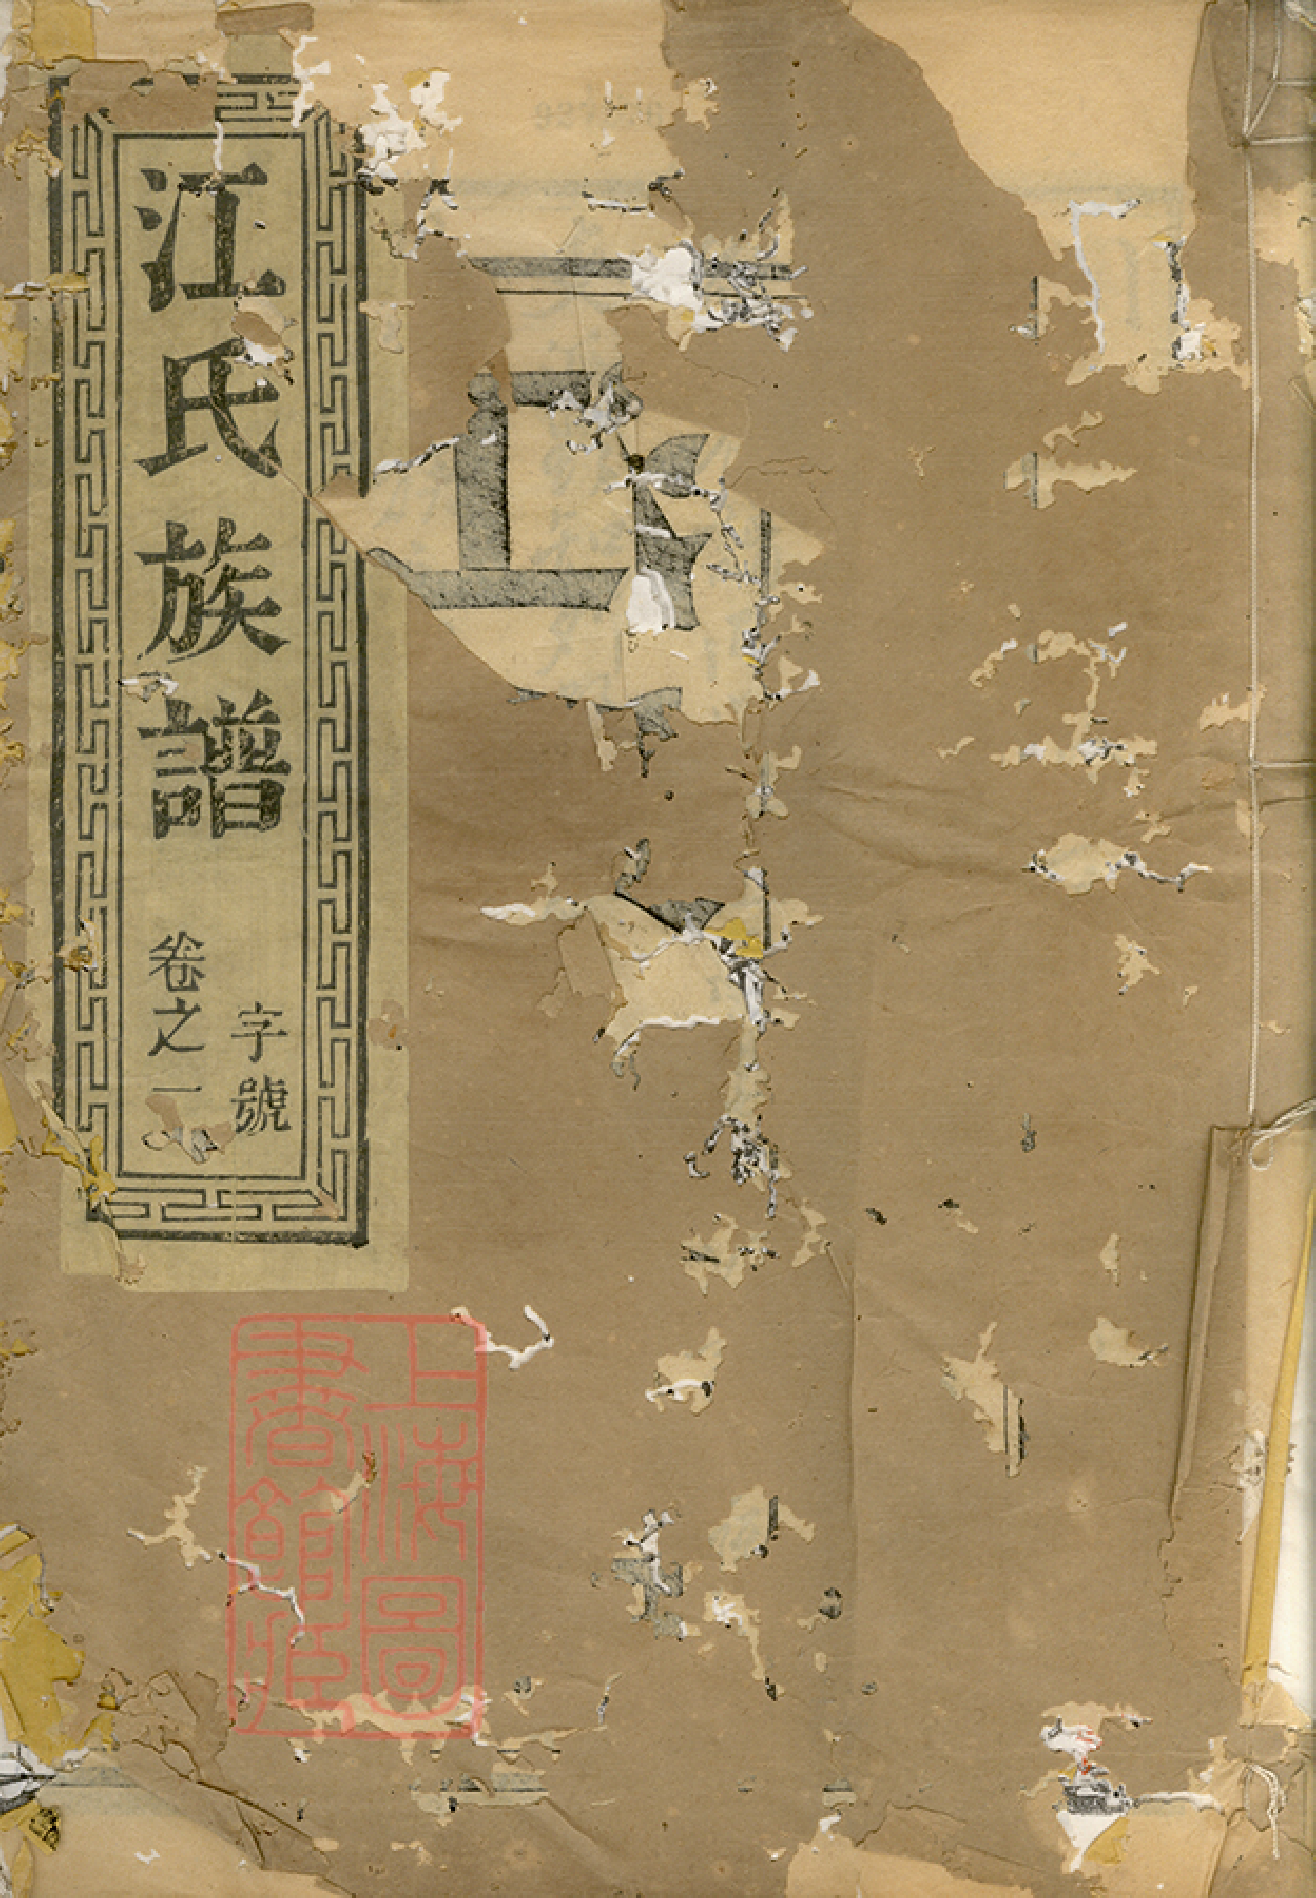 江氏族譜
字號
卷之一
上海圖
書館藏